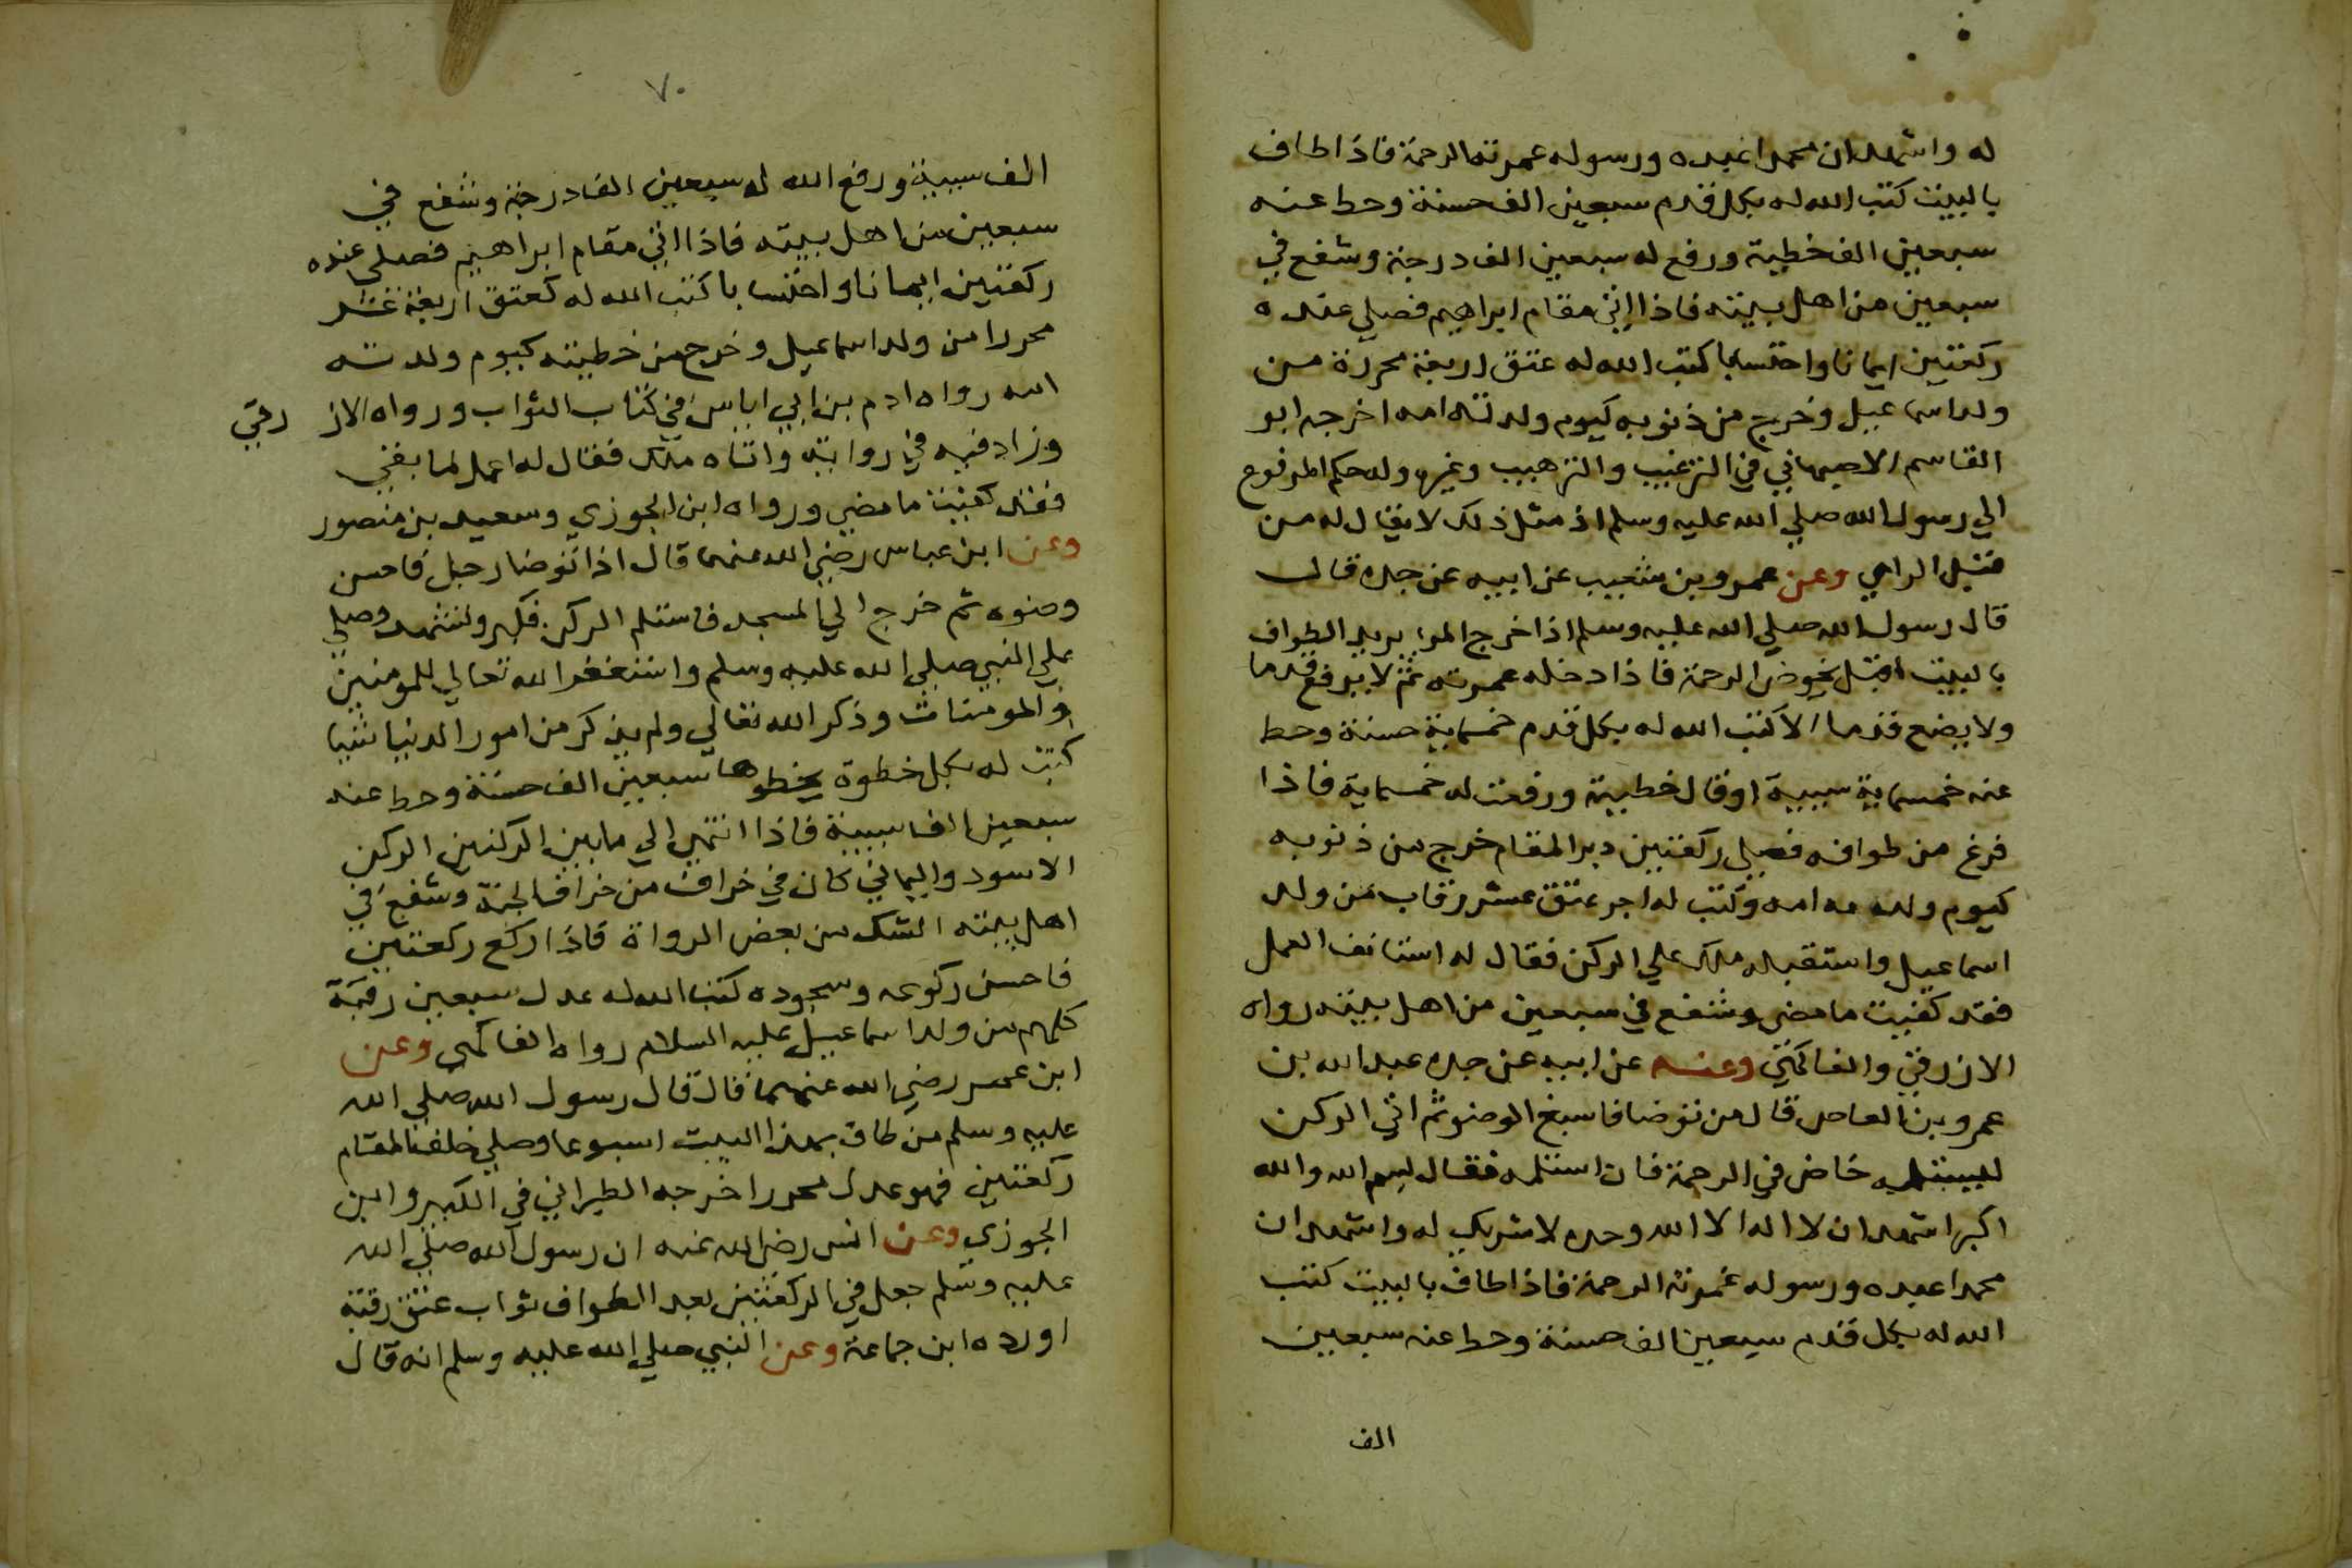 له واشهد ان محمدا عبده ورسوله غمرته الرحمة فاذا طاف
بالبيت كتب الله له بكل قدم سبعين الف حسنة وحط عنه
سبعين الف خطية ورفع له سبعين الف درجة وشفع في
سبعين من اهل بيته فاذا اتى مقام ابراهيم فصلي عنده
ركعتين ايمانا واحتسابا كتب الله له عتق اربعة محررة من
ولد اسماعيل وخرج من ذنوبه كيوم ولدته امه اخرجه ابو
القاسم الاصبهاني في الترغيب والترهيب وغيره وله حكم المرفوع
الي رسول الله صلي الله عليه وسلم اذ مثل ذلك لا يقال له من
قبل الراي وعن عمرو بن شعيب عن ابيه عن جده قال
قال رسول الله صلي الله عليه وسلم اذا خرج المرا يريد الطواف
بالبيت اقبل يخوض الرحمة فاذا دخله غمرته ثم لا يرفع قدما
ولا يضع قدما الا كتب الله له بكل قدم خمسماية حسنة وحط
عنه خمسماية سيية او قال خطيية ورفعت له خمسماية فاذا
فرغ من طوافه فصلي ركعتين دبر المقام خرج من ذنوبه
كيوم ولدته امه وكتب له اجر عتق عشر رقاب من ولد
اسماعيل واستقبله ملك علي الركن فقال له استانف العمل
فقد كفيت ما مضي وشفع في سبعين من اهل بيته رواه
الازرقي والفاكهي وعنه عن ابيه عن جده عبد الله بن
عمرو بن العاص قال من توضا فاسبغ الوضو ثم اتي الركن
ليستلمه خاض في الرحمة فان استلمه فقال بسم الله والله
اكبر اشهد ان لا اله الا الله وحده لا شريك له واشهد ان
محمدا عبده ورسوله غمرته الرحمة فاذا طاف بالبيت كتب
الله له بكل قدم سبعين الف حسنة وحط عنه سبعين
الف
٧٠
الف سيية ورفع الله له سبعين الف درجة وشفع في
سبعين من اهل بيته فاذا اتي مقام ابراهيم فصلي عنده
ركعتين ايمانا واحتسابا كتب الله له كعتق اربعة عشر
محررا من ولد اسماعيل وخرج من خطيته كيوم ولدته
امه رواه ادم بن ابي اياس في كتاب الثواب ورواه الاز رقي
وزاد فيه في روايته واتاه ملك فقال له اعمل لما بقي
فقد كفيت ما مضي ورواه ابن الجوزي وسعيد بن منصور
وعن ابن عباس رضي الله عنهما قال اذا توضا رجل فاحسن
وضوه ثم خرج الي المسجد فاستلم الركن فكبر وتشهد وصلي
علي النبي صلي الله عليه وسلم واستغفر الله تعالي للمومنين
والمومنات وذكر الله تعالي ولم يذكر من امور الدنيا شيا
كتب له بكل خطوة يخطوها سبعين الف حسنة وحط عنه
سبعين الف سيية فاذا انتهي الي ما بين الركنين الركن
الاسود واليماني كان في خراف من خراف الجنة وشفع في
اهل بيته الشك من بعض الرواة فاذا ركع ركعتين
فاحسن ركوعه وسجوده كتب الله له عدل سبعين رقبة
كلهم من ولد اسماعيل عليه السلام رواه الفاكهي وعن
ابن عمر رضي الله عنهما قال قال رسول الله صلي الله
عليه وسلم من طاف بهذا البيت اسبوعا وصلي خلف المقام
ركعتين فهو عدل محرر اخرجه الطبراني في الكبير وابن
الجوزي وعن انس رضي الله عنه ان رسول الله صلي الله
عليه وسلم جعل في الركعتين بعد الطواف ثواب عتق رقبة
اورده ابن جماعة وعن النبي صلي الله عليه وسلم انه قال